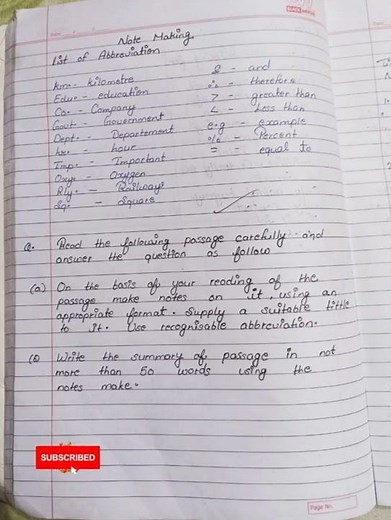 Note Making
List of Abbreviation
km - kilometre
Edu. - education
Co. - Company
Govt. - Government
Dept. - Departement
hr. - hour
Imp. - Important
Oxy. - Oxygen
Rly. - Railways
Sq. - Square
& - and
∴ - therefore
> - greater than
< - Less than
e.g - example
% - Percent
= - equal to
Q. Read the following passage carefully and
answer the question as follow
(a) On the basis of your reading of the
passage make notes on it, using an
appropriate format. Supply a suitable tittle
to it. Use recognisable abbreviation.
(b) Write the summary of passage in not
more than 50 words using the
notes make.
SUBSCRIBED
Page No.